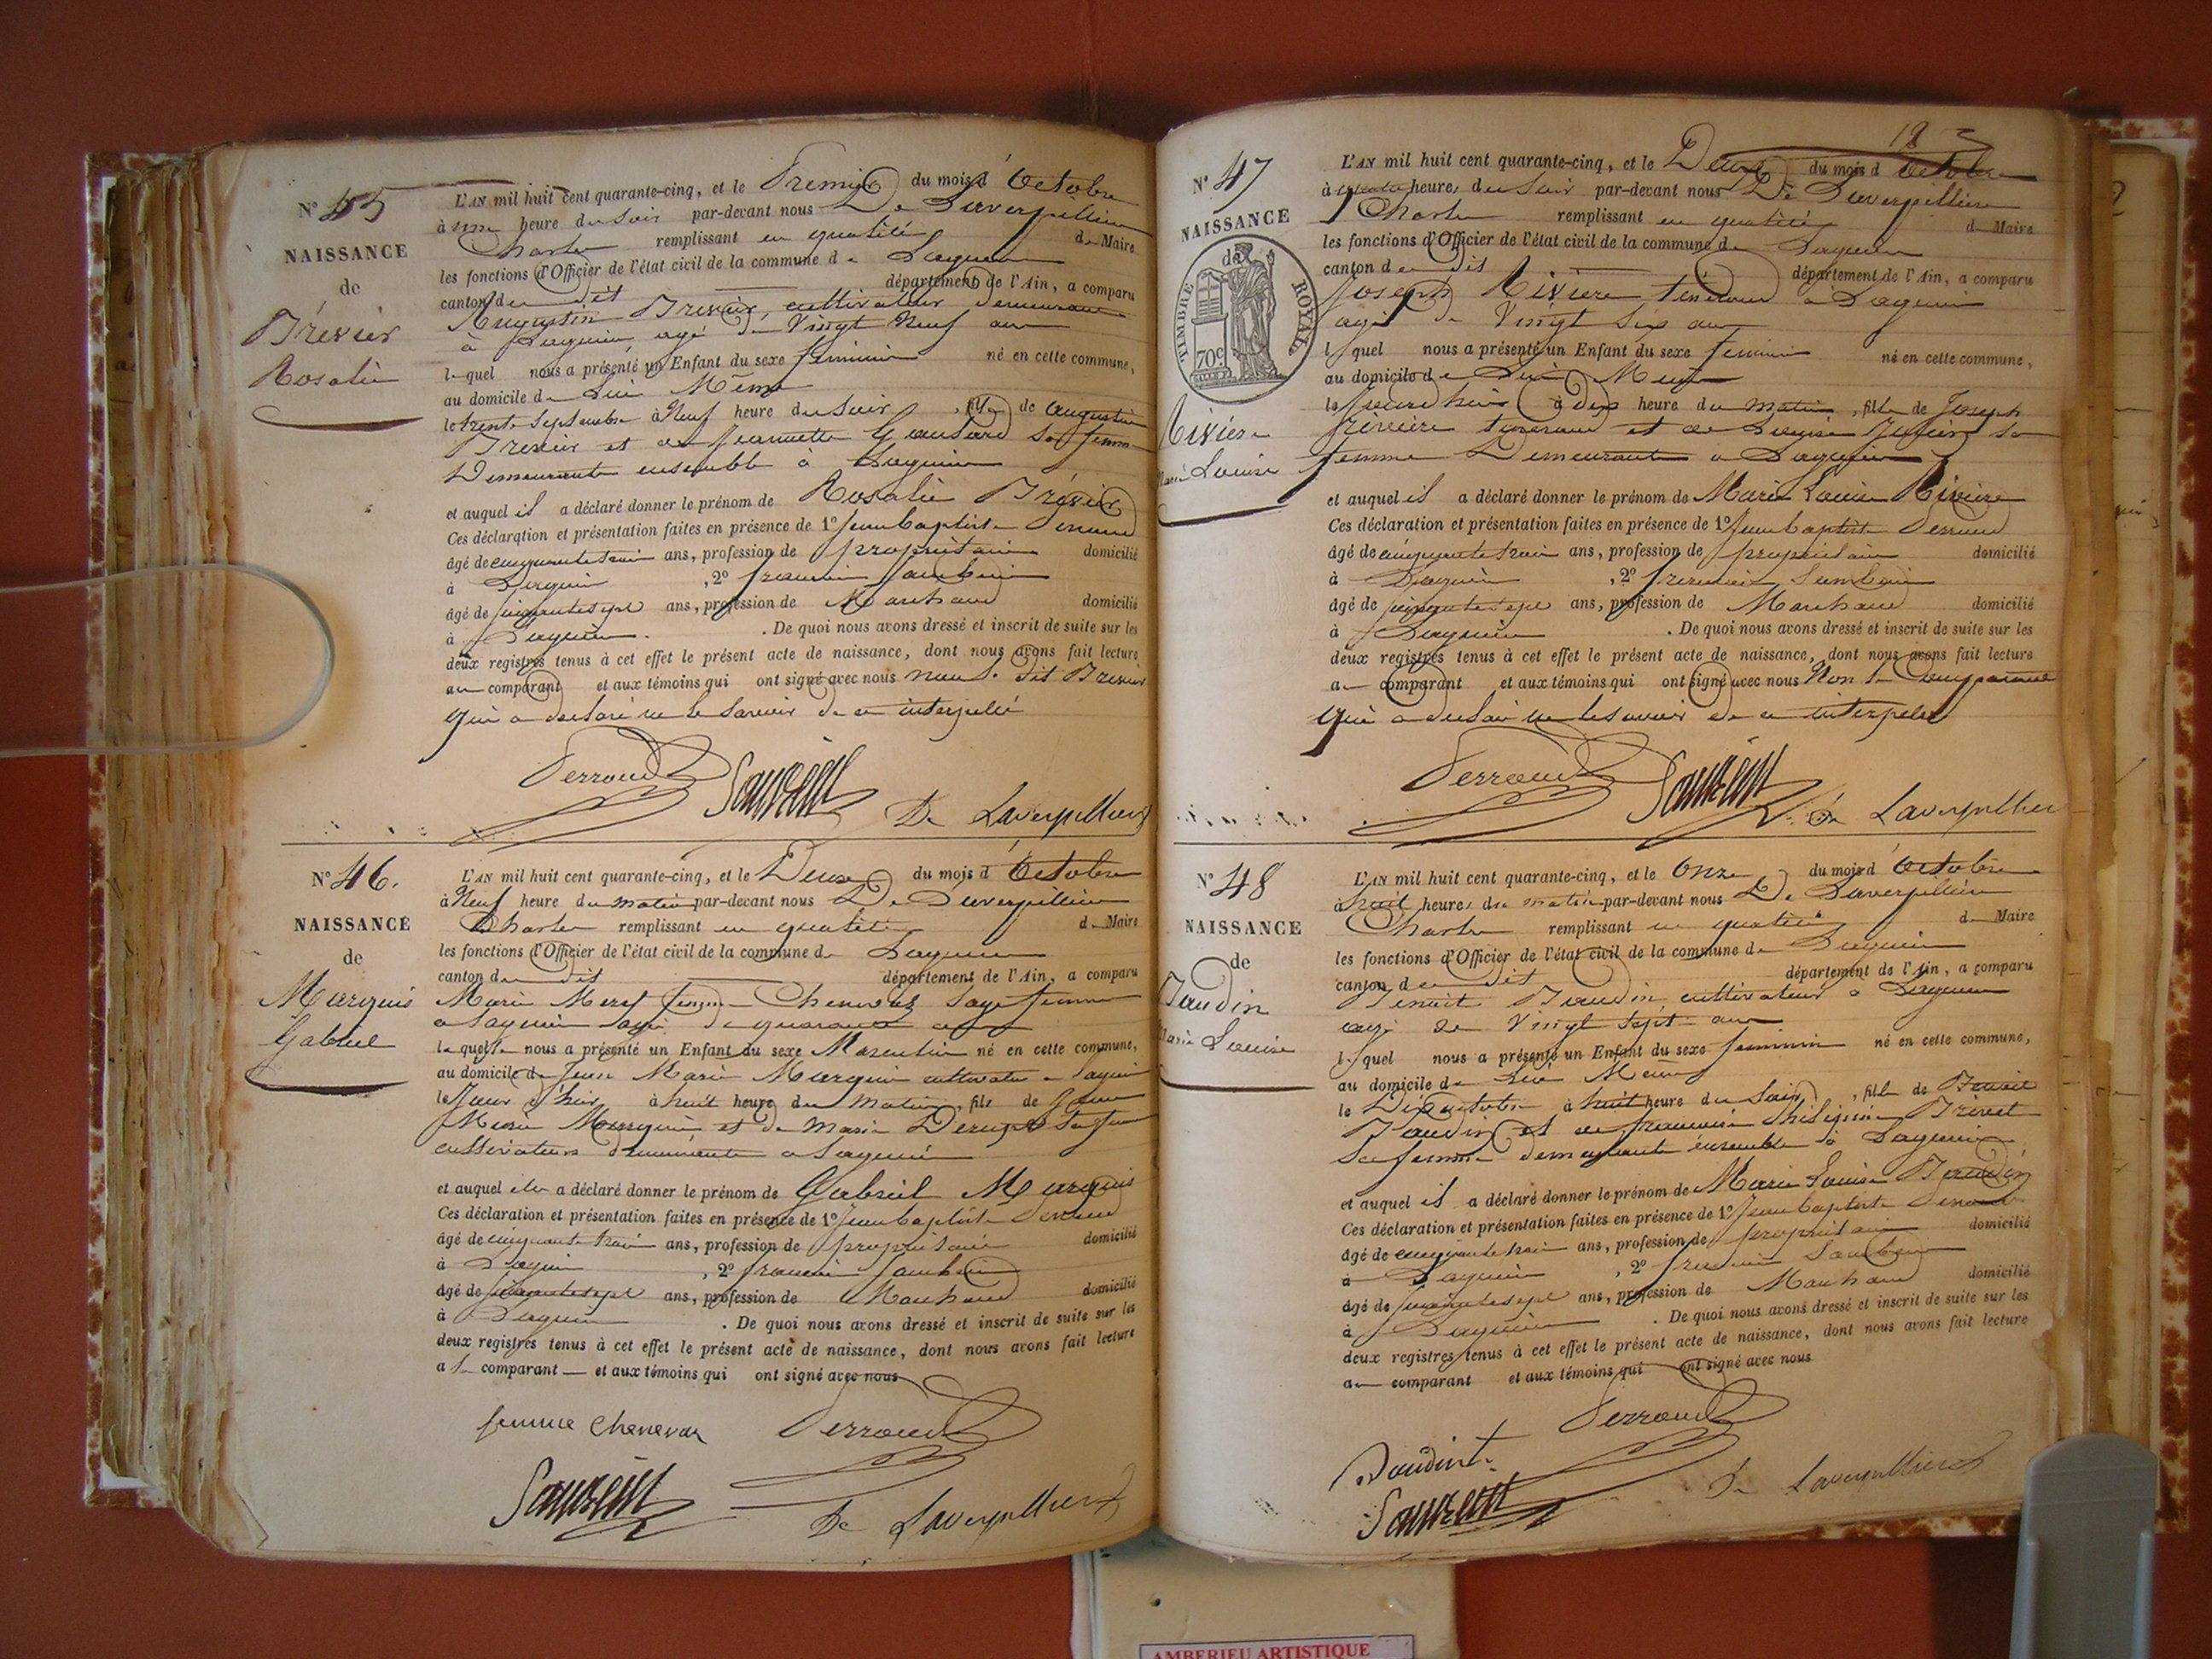 N° 45
NAISSANCE
de
Trévier
Rosalie
L'AN mil huit cent quarante-cinq, et le Premier du mois d'Octobre
à une heure du soir par-devant nous De Laverpillière
Charles remplissant en qualité de Maire
les fonctions d'Officier de l'état civil de la commune de Lagnieu
canton du dit département de l'Ain, a comparu
Augustin cultivateur demeurant
à Lagnieu agé de Vingt Neuf ans
lequel nous a présenté un Enfant du sexe féminin né en cette commune,
au domicile de Lui Même
le trente Septembre à Neuf heure du Soir, fille de Augustin
et de Jeannette sa femme
Demeurants ensemble à Lagnieu
et auquel il a déclaré donner le prénom de Rosalie Trévier
Ces déclaration et présentation faites en présence de 1° Jean Baptiste Perroud
âgé de cinquante trois ans, profession de propriétaire domicilié
à Lagnieu, 2° françois
âgé de cinquante sept ans, profession de Marchand domicilié
à Lagnieu. De quoi nous avons dressé et inscrit de suite sur les
deux registres tenus à cet effet le présent acte de naissance, dont nous avons fait lecture
au comparant et aux témoins qui ont signé avec nous dit
qui a déclaré ne le savoir de ce interpellé
Perroud
De Laverpillière
N° 46.
NAISSANCE
de
Marquis
Gabriel
L'AN mil huit cent quarante-cinq, et le Deux du mois d'Octobre
à Neuf heure du matin par-devant nous De Laverpillière
Charles remplissant en qualité de Maire
les fonctions d'Officier de l'état civil de la commune de Lagnieu
canton du dit département de l'Ain, a comparu
Marie femme Chenevaz Sage femme
a Lagnieu agée de quarante ans
laquelle nous a présenté un Enfant du sexe Masculin né en cette commune,
au domicile de Jean Marie Marquis cultivateur a Lagnieu
le Jour d'hui à huit heure du Matin, fils de Jean
Marie Marquis et de Marie sa fme
cultivateurs demeurants a Lagnieu
et auquel elle a déclaré donner le prénom de Gabriel Marquis
Ces déclaration et présentation faites en présence de 1° Jean Baptiste Perroud
âgé de cinquante trois ans, profession de propriétaire domicilié
à Lagnieu, 2° françois
âgé de cinquante sept ans, profession de Marchand domicilié
à Lagnieu. De quoi nous avons dressé et inscrit de suite sur les
deux registres tenus à cet effet le présent acte de naissance, dont nous avons fait lecture
a la comparant et aux témoins qui ont signé avec nous
femme Chenevaz Perroud
De Laverpillière
18
N° 47
NAISSANCE
de
TIMBRE ROYAL
70c
Rivière
Marie Louise
L'AN mil huit cent quarante-cinq, et le Deux du mois d'Octobre
à quatre heures du Soir par-devant nous De Laverpillière
Charles remplissant en qualité de Maire
les fonctions d'Officier de l'état civil de la commune de Lagnieu
canton du dit département de l'Ain, a comparu
Joseph Rivière à Lagnieu
agé de Vingt Six ans
lequel nous a présenté un Enfant du sexe féminin né en cette commune,
au domicile de Lui Même
le jourd'hui à dix heure du matin, fille de Joseph
rivière et de Louise sa
femme Demeurants a Lagnieu
et auquel il a déclaré donner le prénom de Marie Louise Rivière
Ces déclaration et présentation faites en présence de 1° Jean Baptiste Perroud
âgé de cinquante trois ans, profession de propriétaire domicilié
à Lagnieu, 2° françois
âgé de cinquante sept ans, profession de Marchand domicilié
à Lagnieu. De quoi nous avons dressé et inscrit de suite sur les
deux registres tenus à cet effet le présent acte de naissance, dont nous avons fait lecture
au comparant et aux témoins qui ont signé avec nous Non le comparant
qui a déclaré ne le savoir de ce interpelé
Perroud
De Laverpillière
N° 48
NAISSANCE
de
Baudin
Marie Louise
L'AN mil huit cent quarante-cinq, et le Onze du mois d'Octobre
à huit heures du matin par-devant nous De Laverpillière
Charles remplissant en qualité de Maire
les fonctions d'Officier de l'état civil de la commune de Lagnieu
canton du dit département de l'Ain, a comparu
Benoit Baudin cultivateur a Lagnieu
agé de Vingt Sept ans
lequel nous a présenté un Enfant du sexe féminin né en cette commune,
au domicile de Lui Même
le Dix octobre à huit heure du Soir, fille de Benoit
Baudin et de françoise
sa femme demeurants ensemble à Lagnieu
et auquel il a déclaré donner le prénom de Marie Louise Baudin
Ces déclaration et présentation faites en présence de 1° Jean Baptiste Perroud
âgé de cinquante trois ans, profession de propriétaire domicilié
à Lagnieu, 2° françois
âgé de cinquante sept ans, profession de Marchand domicilié
à Lagnieu. De quoi nous avons dressé et inscrit de suite sur les
deux registres tenus à cet effet le présent acte de naissance, dont nous avons fait lecture
au comparant et aux témoins qui ont signé avec nous
Perroud
De Laverpillière
AMBERIEU ARTISTIQUE